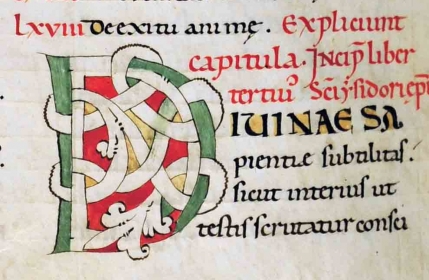 lxviii De exitu animę. Expliciunt
capitula. Incip̄ liber
tertiuˀ Sc̄i ysidori ep̄i
DIUINAE SA
pientie subtilitas.
sicut interius ut
testis scrutatur consci